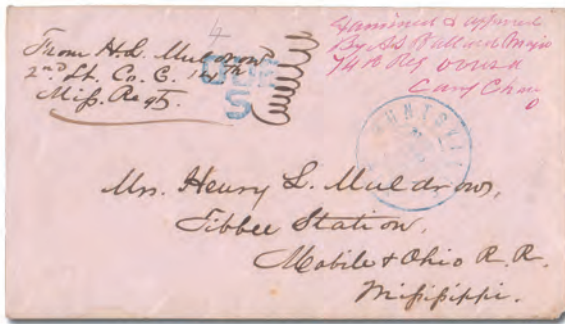 4
From H. L. Muldrow
2nd Lt. Co. C. 14th
Miſs. Regt.
DUE
5
Examined & approved
By A S Ballard Major
74th Reg OVUSA
Camp Chase
O
HUNTSVI
Mrs. Henry L. Muldrow,
Tibbee Station,
Mobile & Ohio R. R.
Miſsiſsippi.